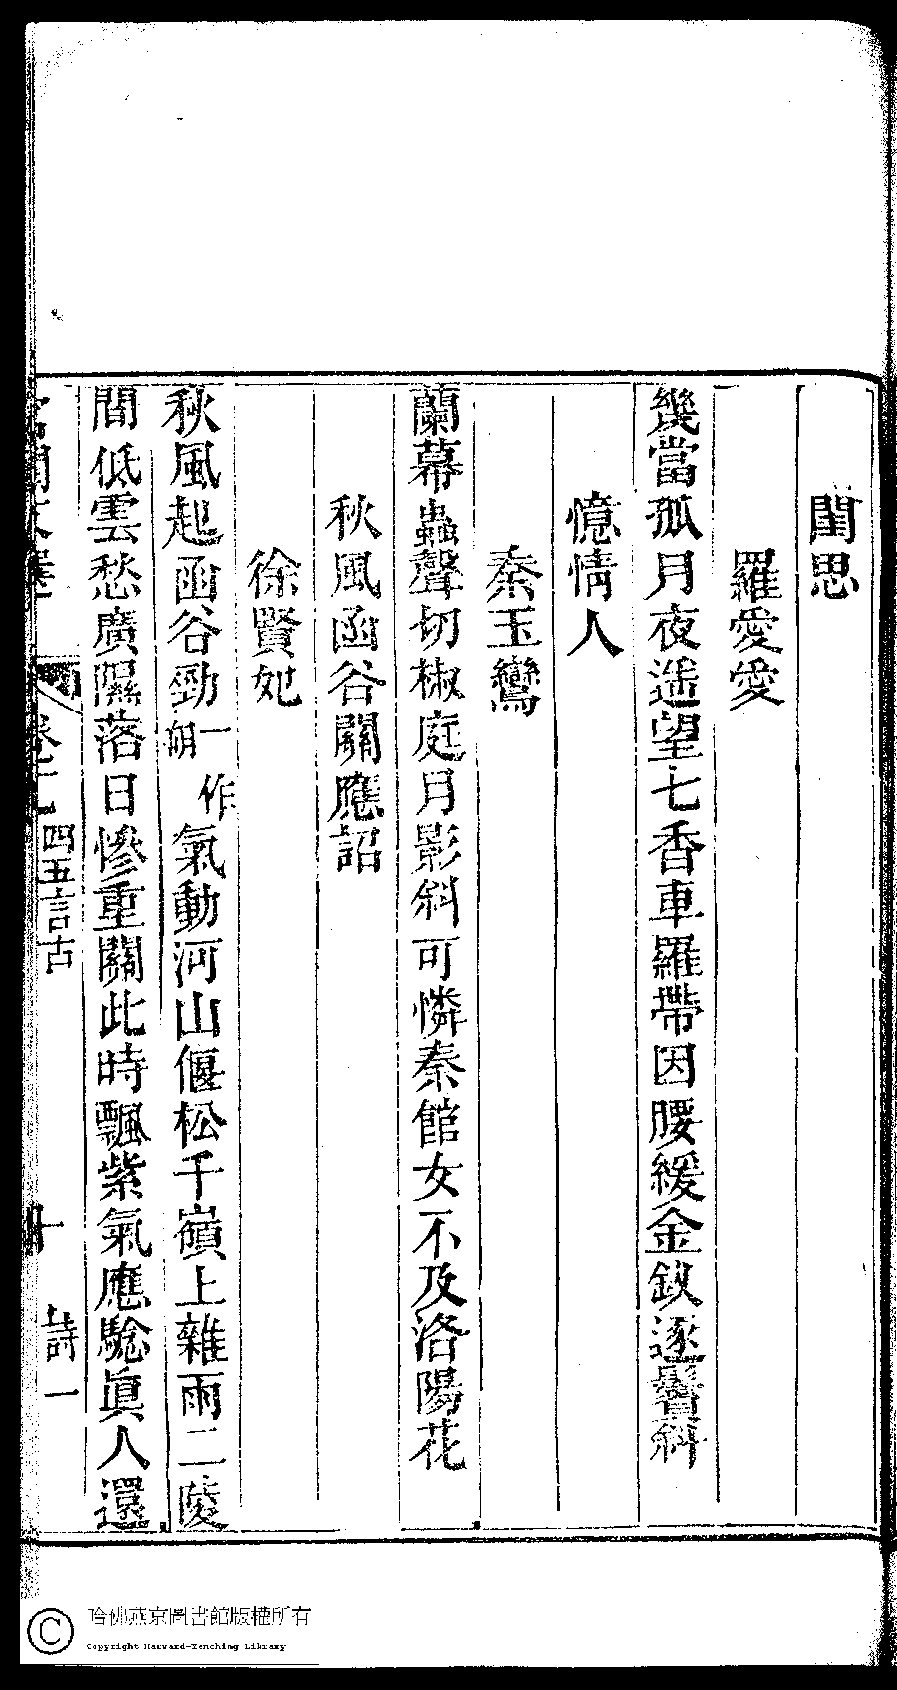 閨思
羅愛愛
幾當孤月夜遥望七香車羅帶因腰緩金釵逐鬢斜
憶情人
秦玉鸞
蘭幕蟲聲切椒庭月影斜可憐秦館女不及洛陽花
秋風函谷關應詔
徐賢妃
秋風起函谷勁一作朔氣動河山偃松千嶺上雜雨二陵
間低雲愁廣隰落日慘重關此時飄紫氣應驗眞人還
卷十七 四五言古 詩一
哈佛燕京圖書館版權所有
Copyright Harvard-Yenching Library